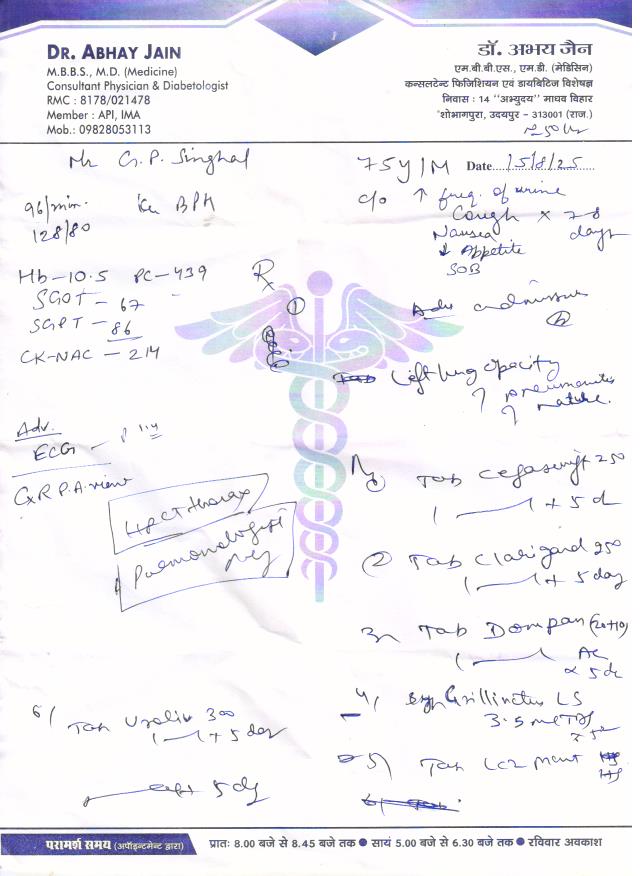 DR. ABHAY JAIN
M.B.B.S., M.D. (Medicine)
Consultant Physician & Diabetologist
RMC : 8178/021478
Member : API, IMA
Mob.: 09828053113
डॉ. अभय जैन
एम.बी.बी.एस., एम.डी. (मेडिसिन)
कन्सलटेन्ट फिजिशियन एवं डायबिटिज विशेषज्ञ
निवास : 14 "अभ्युदय" माधव विहार
शोभागपुरा, उदयपुर - 313001 (राज.)
Mr G.P. Singhal
75Y/M Date 15/8/25
96/min. BPH
128/80
c/o ↑ freq. of urine
Cough x 7-8 days
Nausea
↓ Appetite
SOB
Hb-10.5 PC-439
SGOT - 67
SGPT - 86
CK-NAC - 214
Rx
①
Adv admission
Left lung opacity
? pneumonitis
? nature.
Adv.
ECG -
CXR P.A. view
HRCT thorax
Pulmonologist
Tab 250
1 + 5 d
② Tab Clarigard 250
1 + 5 day
3 Tab Dompan (20+10)
1 AC
x 5d
4/ Syp Grillinctus LS
3.5 ml TDS
5) Tab LCZ Mont HS
6/ Tab 300
1 + 5 day
5 day
परामर्श समय (अपॉइन्टमेन्ट द्वारा) प्रातः 8.00 बजे से 8.45 बजे तक ● सायं 5.00 बजे से 6.30 बजे तक ● रविवार अवकाश